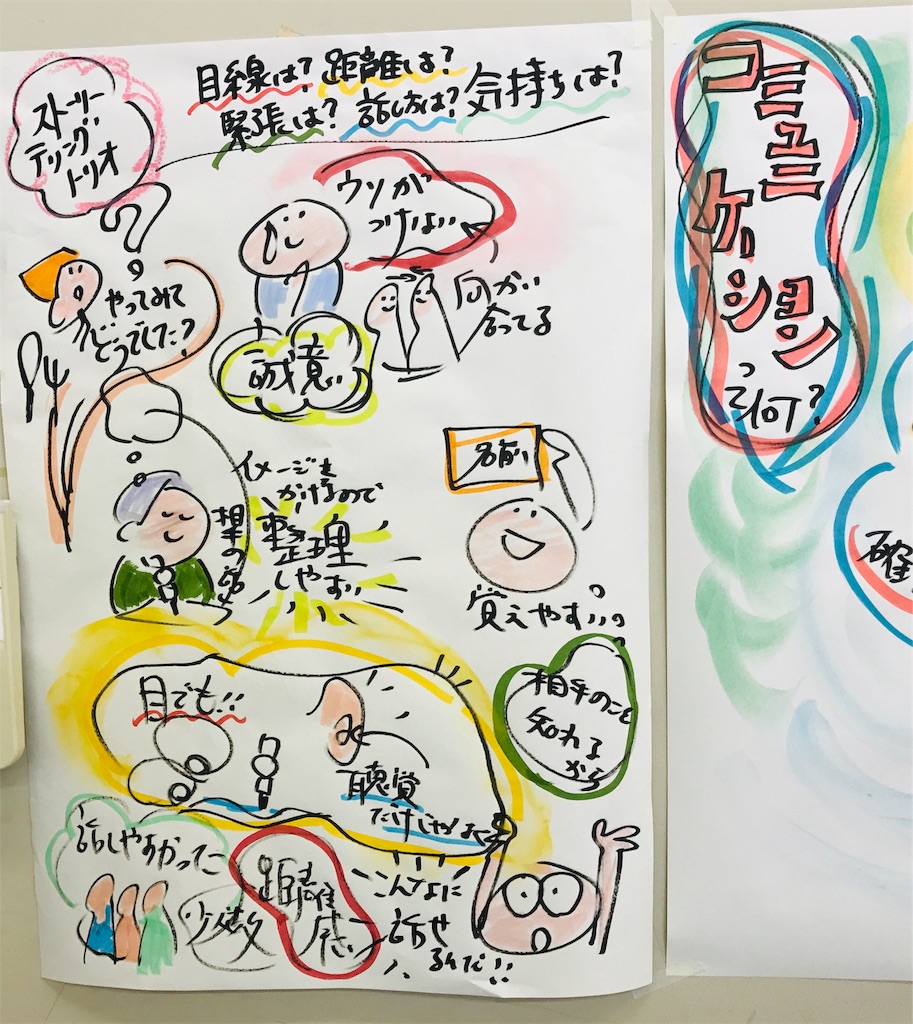 ストーリー
テリング
トリオ
目線は？ 距離は？
緊張は？ 話し方は？ 気持ちは？
ウソが
つけない
やってみて
どうでした？
向かい
合ってる
誠意
イメージを
かけるので
整理
しやすい
名前
覚えやすい。
目でも!!
聴覚
だけじゃなく
相手のこと
知れる
から
話しやすかった
少人数
距離
感
こんなに
話せ
るんだ!!
コミュニ
ケー
ション
って何？
確